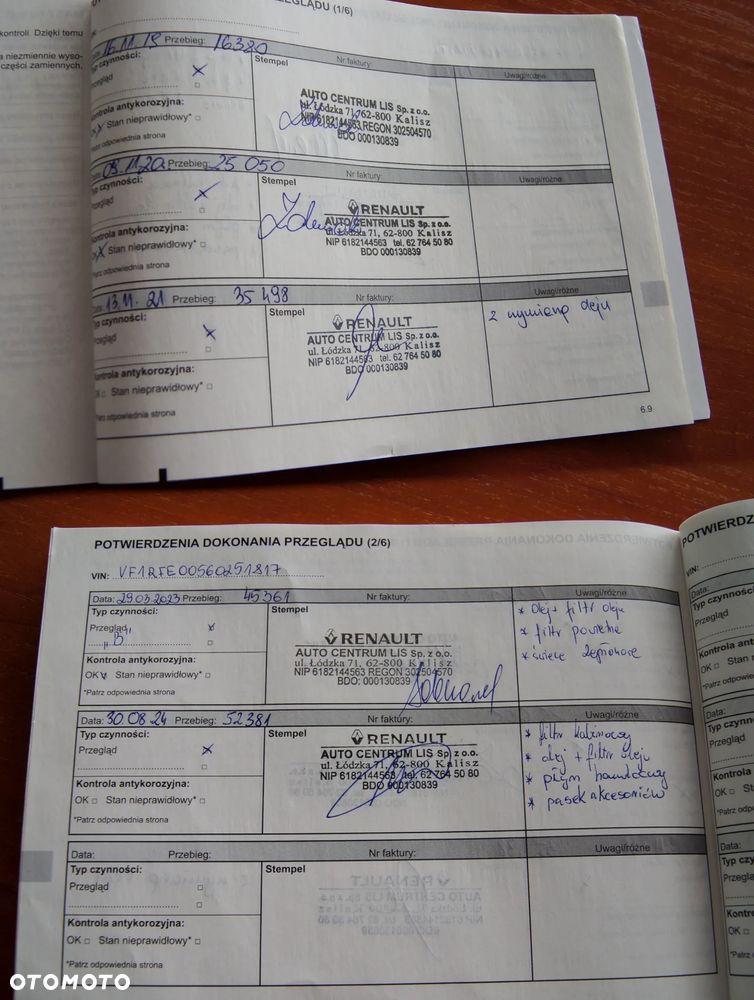 kontroli. Dzięki temu
a niezmiennie wyso-
części zamiennych,
PRZEGLĄDU (1/6)
16.11.19 Przebieg: 16320
Typ czynności:
Przegląd
Kontrola antykorozyjna:
Stan nieprawidłowy* □
*Patrz odpowiednia strona
Stempel
Nr faktury:
Uwagi/różne
AUTO CENTRUM LIS Sp. z o.o.
ul. Łódzka 71, 62-800 Kalisz
NIP 6182144563 REGON 302504570
BDO 000130839
11.20 Przebieg: 25 050
Typ czynności:
Przegląd
Kontrola antykorozyjna:
Stan nieprawidłowy* □
*Patrz odpowiednia strona
Stempel
Nr faktury:
Uwagi/różne
RENAULT
AUTO CENTRUM LIS Sp. z o.o.
ul. Łódzka 71, 62-800 Kalisz
NIP 6182144563 tel. 62 764 50 80
BDO 000130839
13.11.21 Przebieg: 35 498
Typ czynności:
Przegląd
Kontrola antykorozyjna:
OK □ Stan nieprawidłowy* □
*Patrz odpowiednia strona
Stempel
Nr faktury:
Uwagi/różne
RENAULT
AUTO CENTRUM LIS Sp. z o.o.
ul. Łódzka 71, 62-800 Kalisz
NIP 6182144563 tel. 62 764 50 80
BDO 000130839
z wymianą oleju
6.9
POTWIERDZENIA DOKONANIA PRZEGLĄDU (2/6)
VIN: VF1RFE00560251817
Data: 29.03.2023 Przebieg: 45361
Nr faktury:
Uwagi/różne
Typ czynności:
Przegląd
"B"
Kontrola antykorozyjna:
OK Stan nieprawidłowy* □
*Patrz odpowiednia strona
Stempel
RENAULT
AUTO CENTRUM LIS Sp. z o.o.
ul. Łódzka 71, 62-800 Kalisz
NIP 6182144563 REGON 302504570
BDO: 000130839
* olej + filtr oleju
* filtr powietrza
* świece zapłonowe
Data: 30.08.24 Przebieg: 52381
Nr faktury:
Uwagi/różne
Typ czynności:
Przegląd
Kontrola antykorozyjna:
OK □ Stan nieprawidłowy* □
*Patrz odpowiednia strona
Stempel
RENAULT
AUTO CENTRUM LIS Sp. z o.o.
ul. Łódzka 71, 62-800 Kalisz
NIP 6182144563 tel. 62 764 50 80
BDO 000130839
* filtr kabinowy
* olej + filtr oleju
* płyn hamulcowy
* pasek akcesoriów
Data: Przebieg:
Nr faktury:
Uwagi/różne
Typ czynności:
Przegląd □
Kontrola antykorozyjna:
OK □ Stan nieprawidłowy* □
*Patrz odpowiednia strona
Stempel
POTWIERDZ
VIN:
Data:
Typ czynności
Przegląd
Kontrola anty
OK □ Stan n
*Patrz odpowied
Data:
Typ czynnoś
Przegląd
Kontrola an
OK □ Stan
*Patrz odpow
OTOMOTO